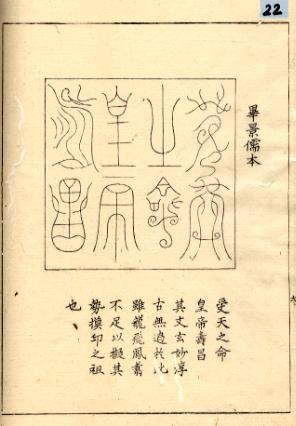 22
畢景儒本
受天之命
皇帝壽昌
其文玄妙淳
古無過於此
雖龍飛鳳翥
不足以擬其
勢摸印之祖
也